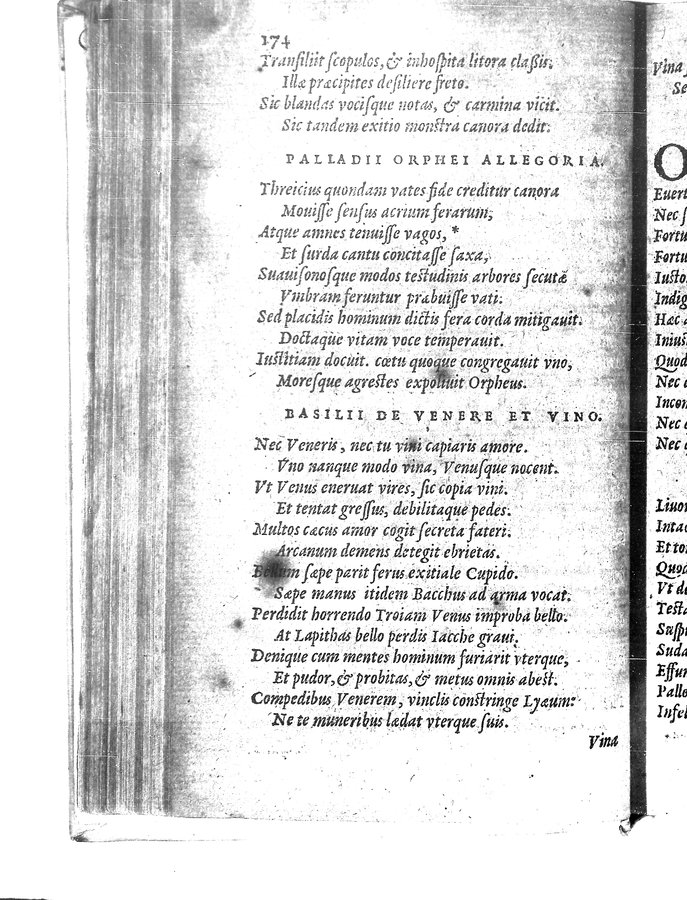 174
Transiliit scopulos, & inhospita litora claßis:
Illæ præcipites desiliere freto.
Sic blandas vocisque notas, & carmina vicit.
Sic tandem exitio monstra canora dedit.
PALLADII ORPHEI ALLEGORIA.
Threicius quondam vates fide creditur canora
Mouisse sensus acrium ferarum,
Atque amnes tenuisse vagos, *
Et surda cantu concitasse saxa,
Suauisonosque modos testudinis arbores secutæ
Vmbram feruntur præbuisse vati.
Sed placidis hominum dictis fera corda mitigauit.
Doctaque vitam voce temperauit.
Iustitiam docuit. cœtu quoque congregauit vno,
Moresque agrestes expoliuit Orpheus.
BASILII DE VENERE ET VINO.
Nec Veneris, nec tu vini capiaris amore.
Vno nanque modo vina, Venusque nocent.
Vt Venus eneruat vires, sic copia vini.
Et tentat gressus, debilitaque pedes.
Multos cæcus amor cogit secreta fateri.
Arcanum demens detegit ebrietas.
Bellum sæpe parit ferus exitiale Cupido.
Sæpe manus itidem Bacchus ad arma vocat.
Perdidit horrendo Troiam Venus improba bello.
At Lapithas bello perdis Iacche graui.
Denique cum mentes hominum furiarit vterque,
Et pudor, & probitas, & metus omnis abest.
Compedibus Venerem, vinclis constringe Lyæum:
Ne te muneribus lædat vterque suis.
Vina
Vina
Se
O
Euert
Nec s
Fortu
Fortu
Iusto
Indig
Hæc a
Inius
Quod
Nec
Incon
Nec
Nec
Liuor
Intac
Et to
Quod
Vt de
Testa
Suspi
Suda
Effun
Palle
Infel